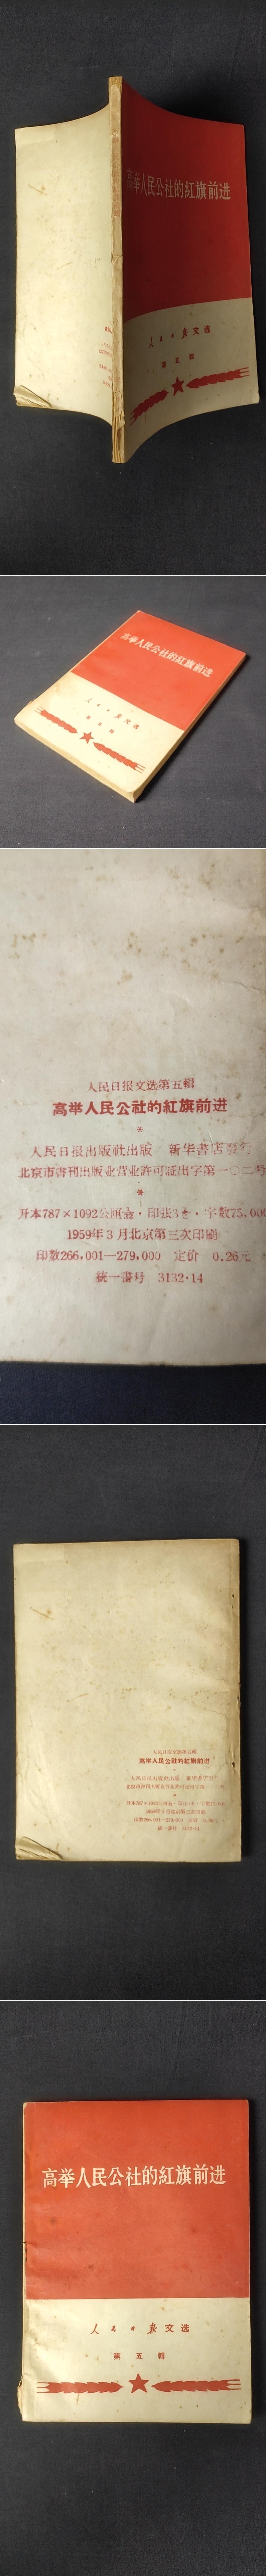 高举人民公社的紅旗前进
人民日报文选
第五輯
高举人民公社的紅旗前进
人民日报文选
第五輯
人民日报文选第五輯
高举人民公社的紅旗前进
*
人民日报出版社出版 新华書店發行
北京市書刊出版业营业許可証出字第一〇二号
*
开本787×1092公厘 · 印张3 · 字数75,000
1959年3月北京第三次印刷
印数266,001—279,000 定价 0.26元
統一書号 3132·14
人民日报文选第五輯
高举人民公社的紅旗前进
人民日报出版社出版 新华書店發行
1959年3月北京第三次印刷
統一書号 3132·14
高举人民公社的紅旗前进
人民日报文选
第五輯